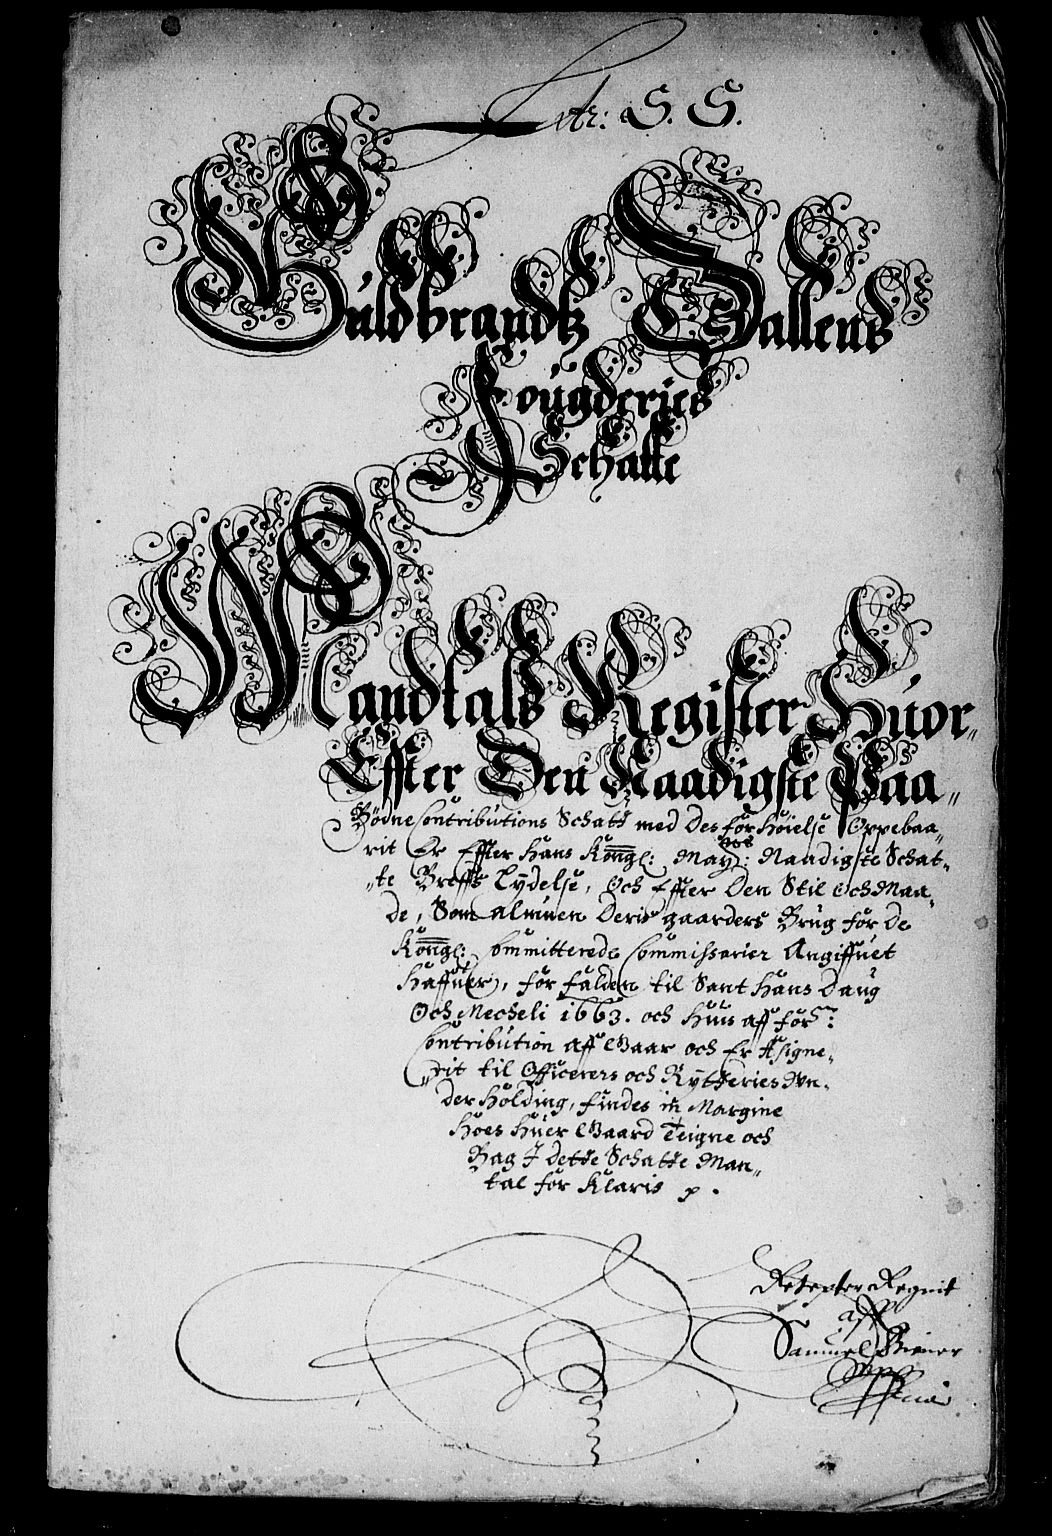 Litr: S. S.
Guldbrandtz Dallens
Fougderies
Schatte
Mandtals Register Huor„
Effter Den Naadigste Paa„
Bödne Contributions Schatt med Des forhöielse Oppebaa„
rit Er Effter Hans Kongl: May: Naadigste Schat„
„te Breffs Lydelse, Och Effter Den Stil och Maa„
de, Som almuen Deris gaarders Brug for De
Kongl: Committerede Commissarier Angiffuet
Haffuer, for falden til Sant Hans Daug
Och Mecheli 1663. och Huis aff for:
Contribution aff Gaar och Er Asigne„
„rit til Officerers och Rytteries Vn„
der Holding, findes in Margine
Hoes Huer Gaard Teigne och
Bag I dette Schatte Man„
tal for Klaris p.
Samuel